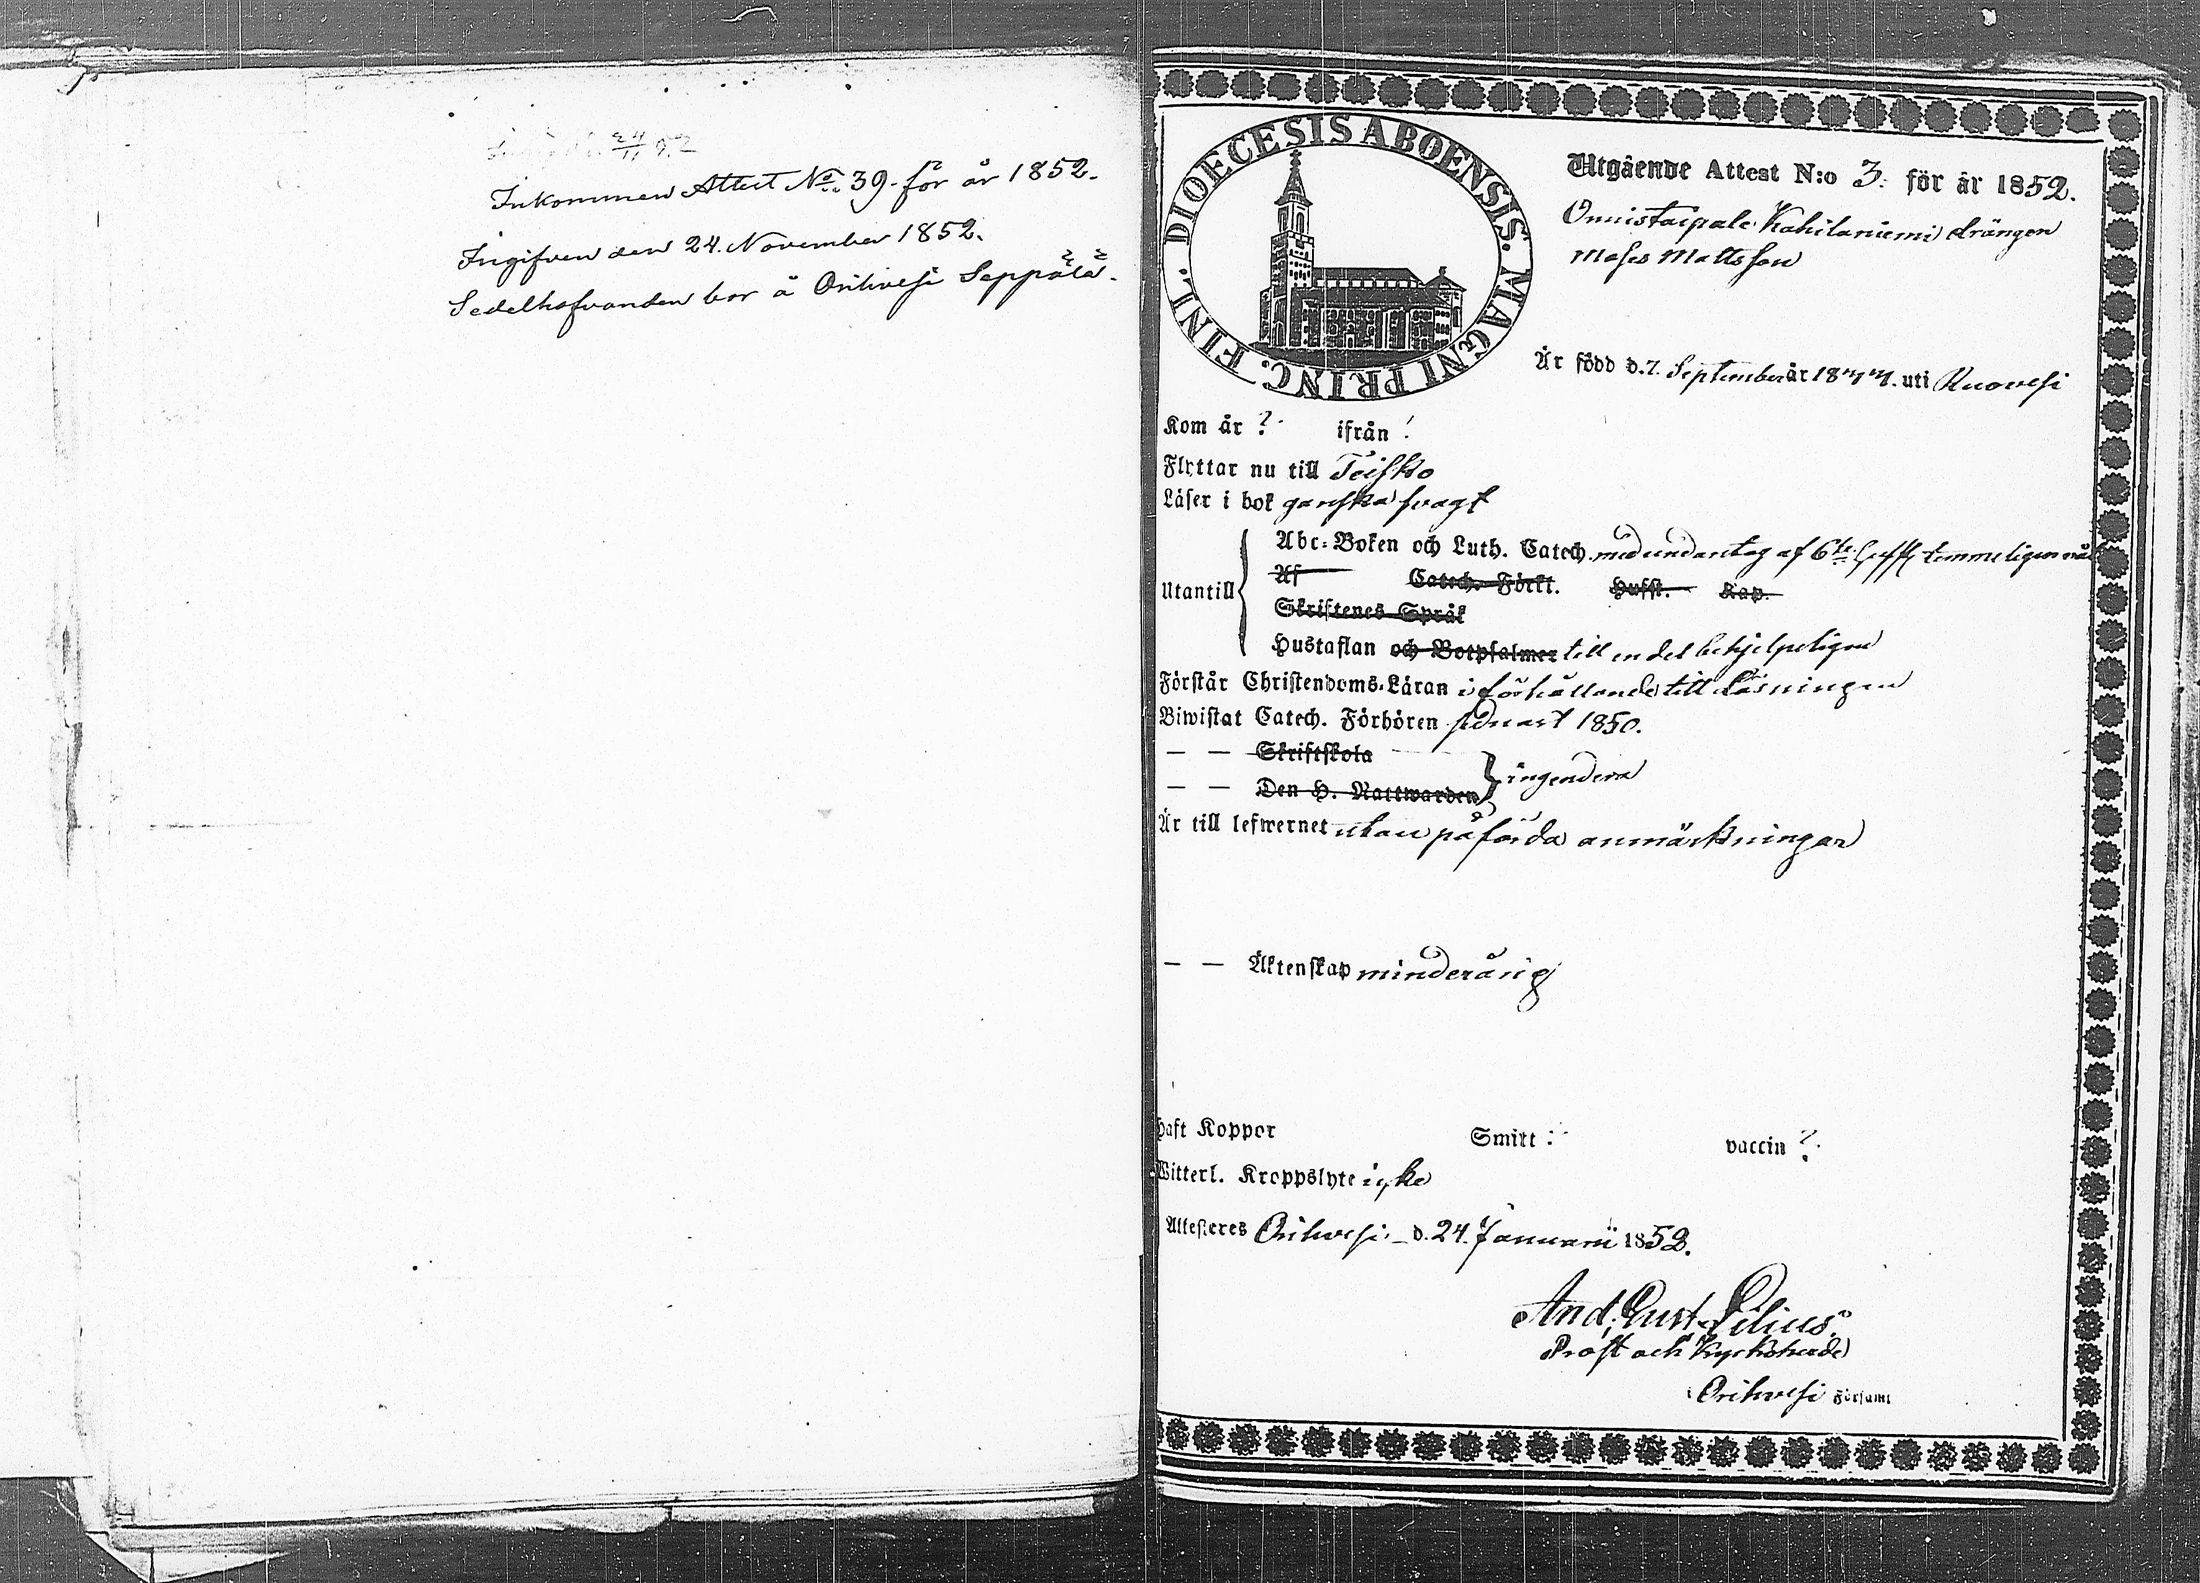 24/11 52
Inkommen Attest No 39. för år 1852.
Ingifven den 24. November 1852.
Sedelhafvanden bor å Orihvesi Seppälä.
DIOECESIS ABOENSIS. MAGNI PRINC. FINL.
Utgående Attest N:o 3. för år 1852.
Onnistaipale Kahilaniemi drängen
Moses Mattsson
Är född d. 7. September år 18 uti Ruovesi
Kom år ? ifrån !
Flyttar nu till Teisko
Läser i bok ganska svagt
Utantill
Abc-Boken och Luth. Catech. med undantag af 6te hufst temmeligen
Af Catech. Förkl. Hufst. Kap.
Skriftenes Språk
Hustaflan och Botpsalmer till en del behjelpeligen
Förstår Christendoms-Läran i förhållande till läsningen
Biwistat Catech. Förhören sednast 1850.
— — Skriftskola
ingendera
— — Den H. Nattwarden
Är till lefwernet utan påförda anmärkningar
— — Äktenskap minderårig
Haft Koppor Smitt: vaccin ?
Witterl. Kroppslyte icke
Attesteres Orihvesi d. 24. Januarii 1852.
And. Gust. Pilius.
Prost och Kyrkoherde
i Orihvesi Församl